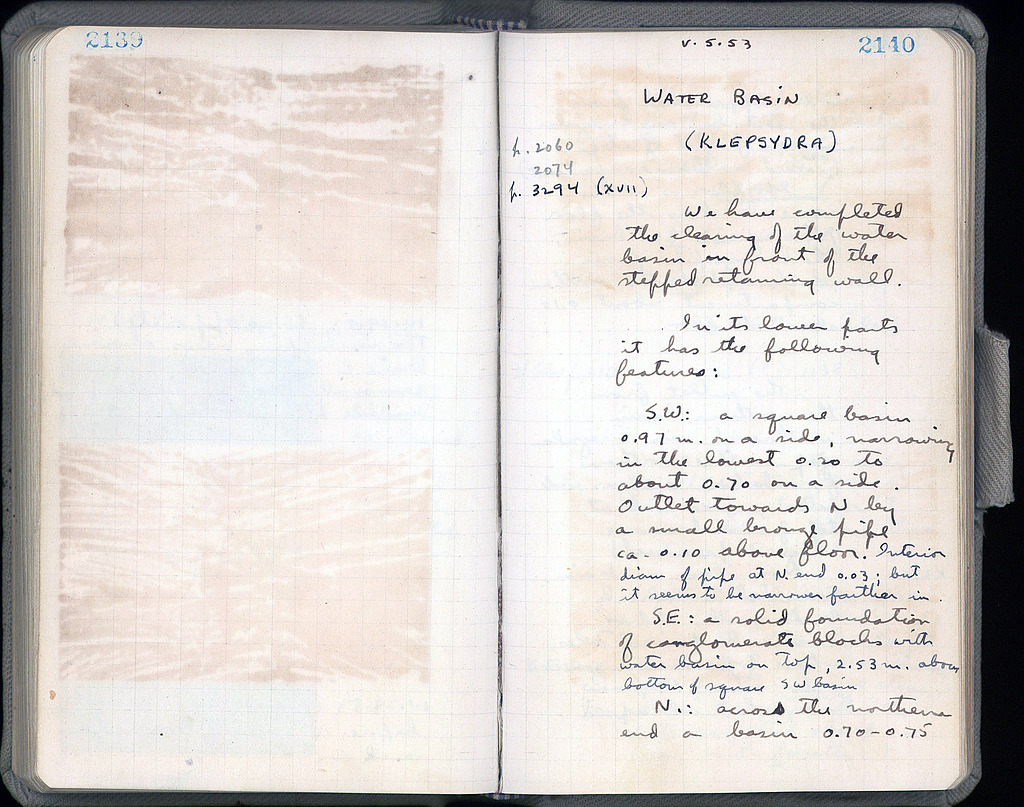 2139
v. 5. 53
2140
WATER BASIN
(KLEPSYDRA)
p. 2060
2074
p. 3294 (XVII)
We have completed
the clearing of the water
basin in front of the
stepped retaining wall.
In its lower parts
it has the following
features:
S.W.: a square basin
0.97 m. on a side, narrowing
in the lowest 0.20 to
about 0.70 on a side.
Outlet towards N by
a small bronze pipe
ca. 0.10 above floor. Interior
diam of pipe at N. end 0.03; but
it seems to be narrower farther in.
S.E.: a solid foundation
of conglomerate blocks with
water basin on top, 2.53 m. above
bottom of square SW basin
N.: across the northern
end a basin 0.70-0.75